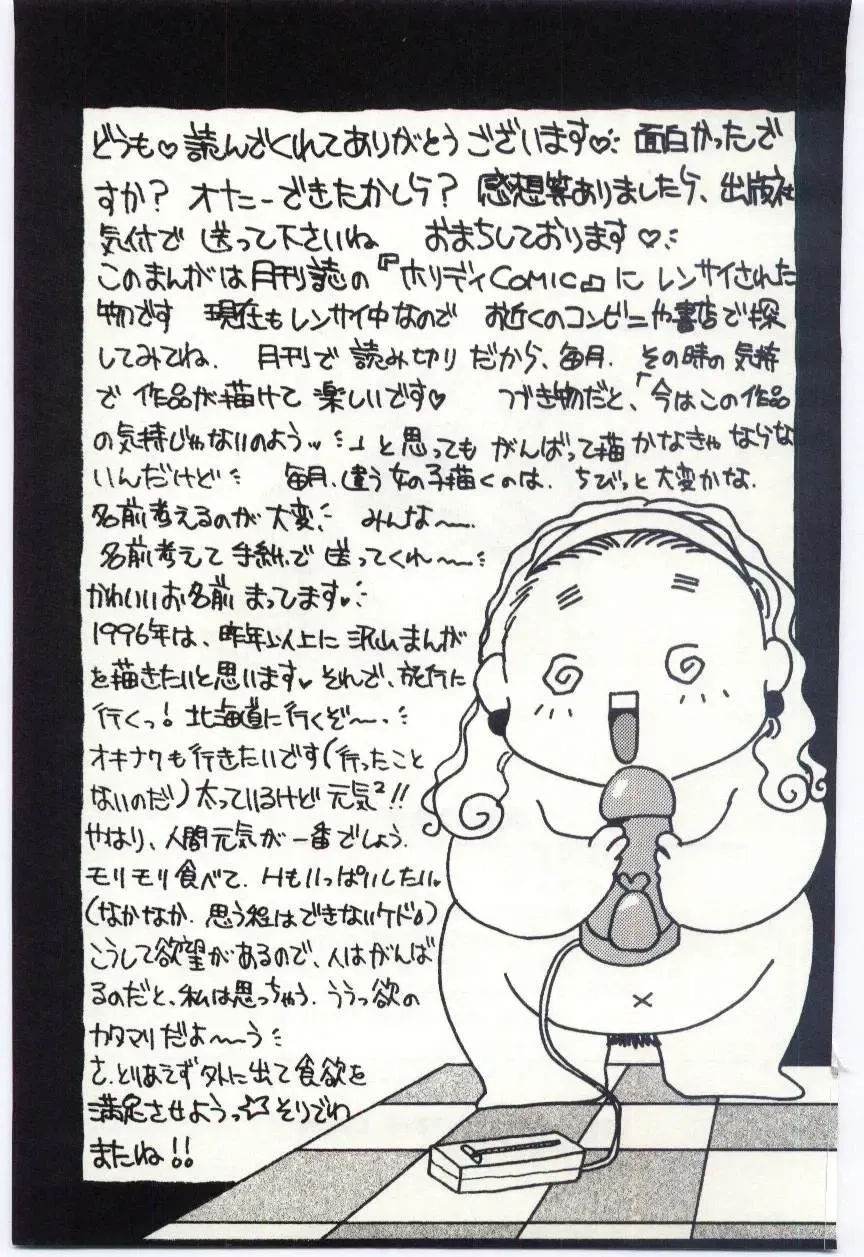 どうも♡読んでくれてありがとうございます♡ 面白かったで
すか? オナニーできたかしら? 感想等ありましたら、出版社
気付で 送って下さいね おまちしております♡
このまんがは月刊誌の『ホリディCOMIC』に レンサイされた
物です 現在もレンサイ中なので お近くのコンビニや書店で探
してみてね. 月刊で 読み切り だから、毎月. その時の気持
で 作品が描けて 楽しいです♥ つづき物だと、「今はこの作品
の気持じゃないのよう〟」と思っても がんばって描かなきゃならな
いんだけど 毎月、違う女の子描くのは. ちびっと大変かな.
名前考えるのが大変 みんな〜.
名前考えて 手紙で 送ってくれ〜
かわいいお名前 まってます♥
1996年は、昨年以上に沢山まんが
を描きたいと思います♥ それで、旅行に
行くっ! 北海道に行くぞ〜.
オキナワも行きたいです(行ったこと
ないのだ) 太っているけど 元気²!!
やはり、人間元気が一番でしょう.
モリモリ食べて. Hもいっぱいしたい♥
(なかなか. 思う程はできないケド)
こうして欲望があるので、人はがんば
るのだと、私は思っちゃう. ううっ欲の
カタマリだよ〜〜う
さ、とりあえず外に出て食欲を
満足させようっ☆ そりでわ
またね!!